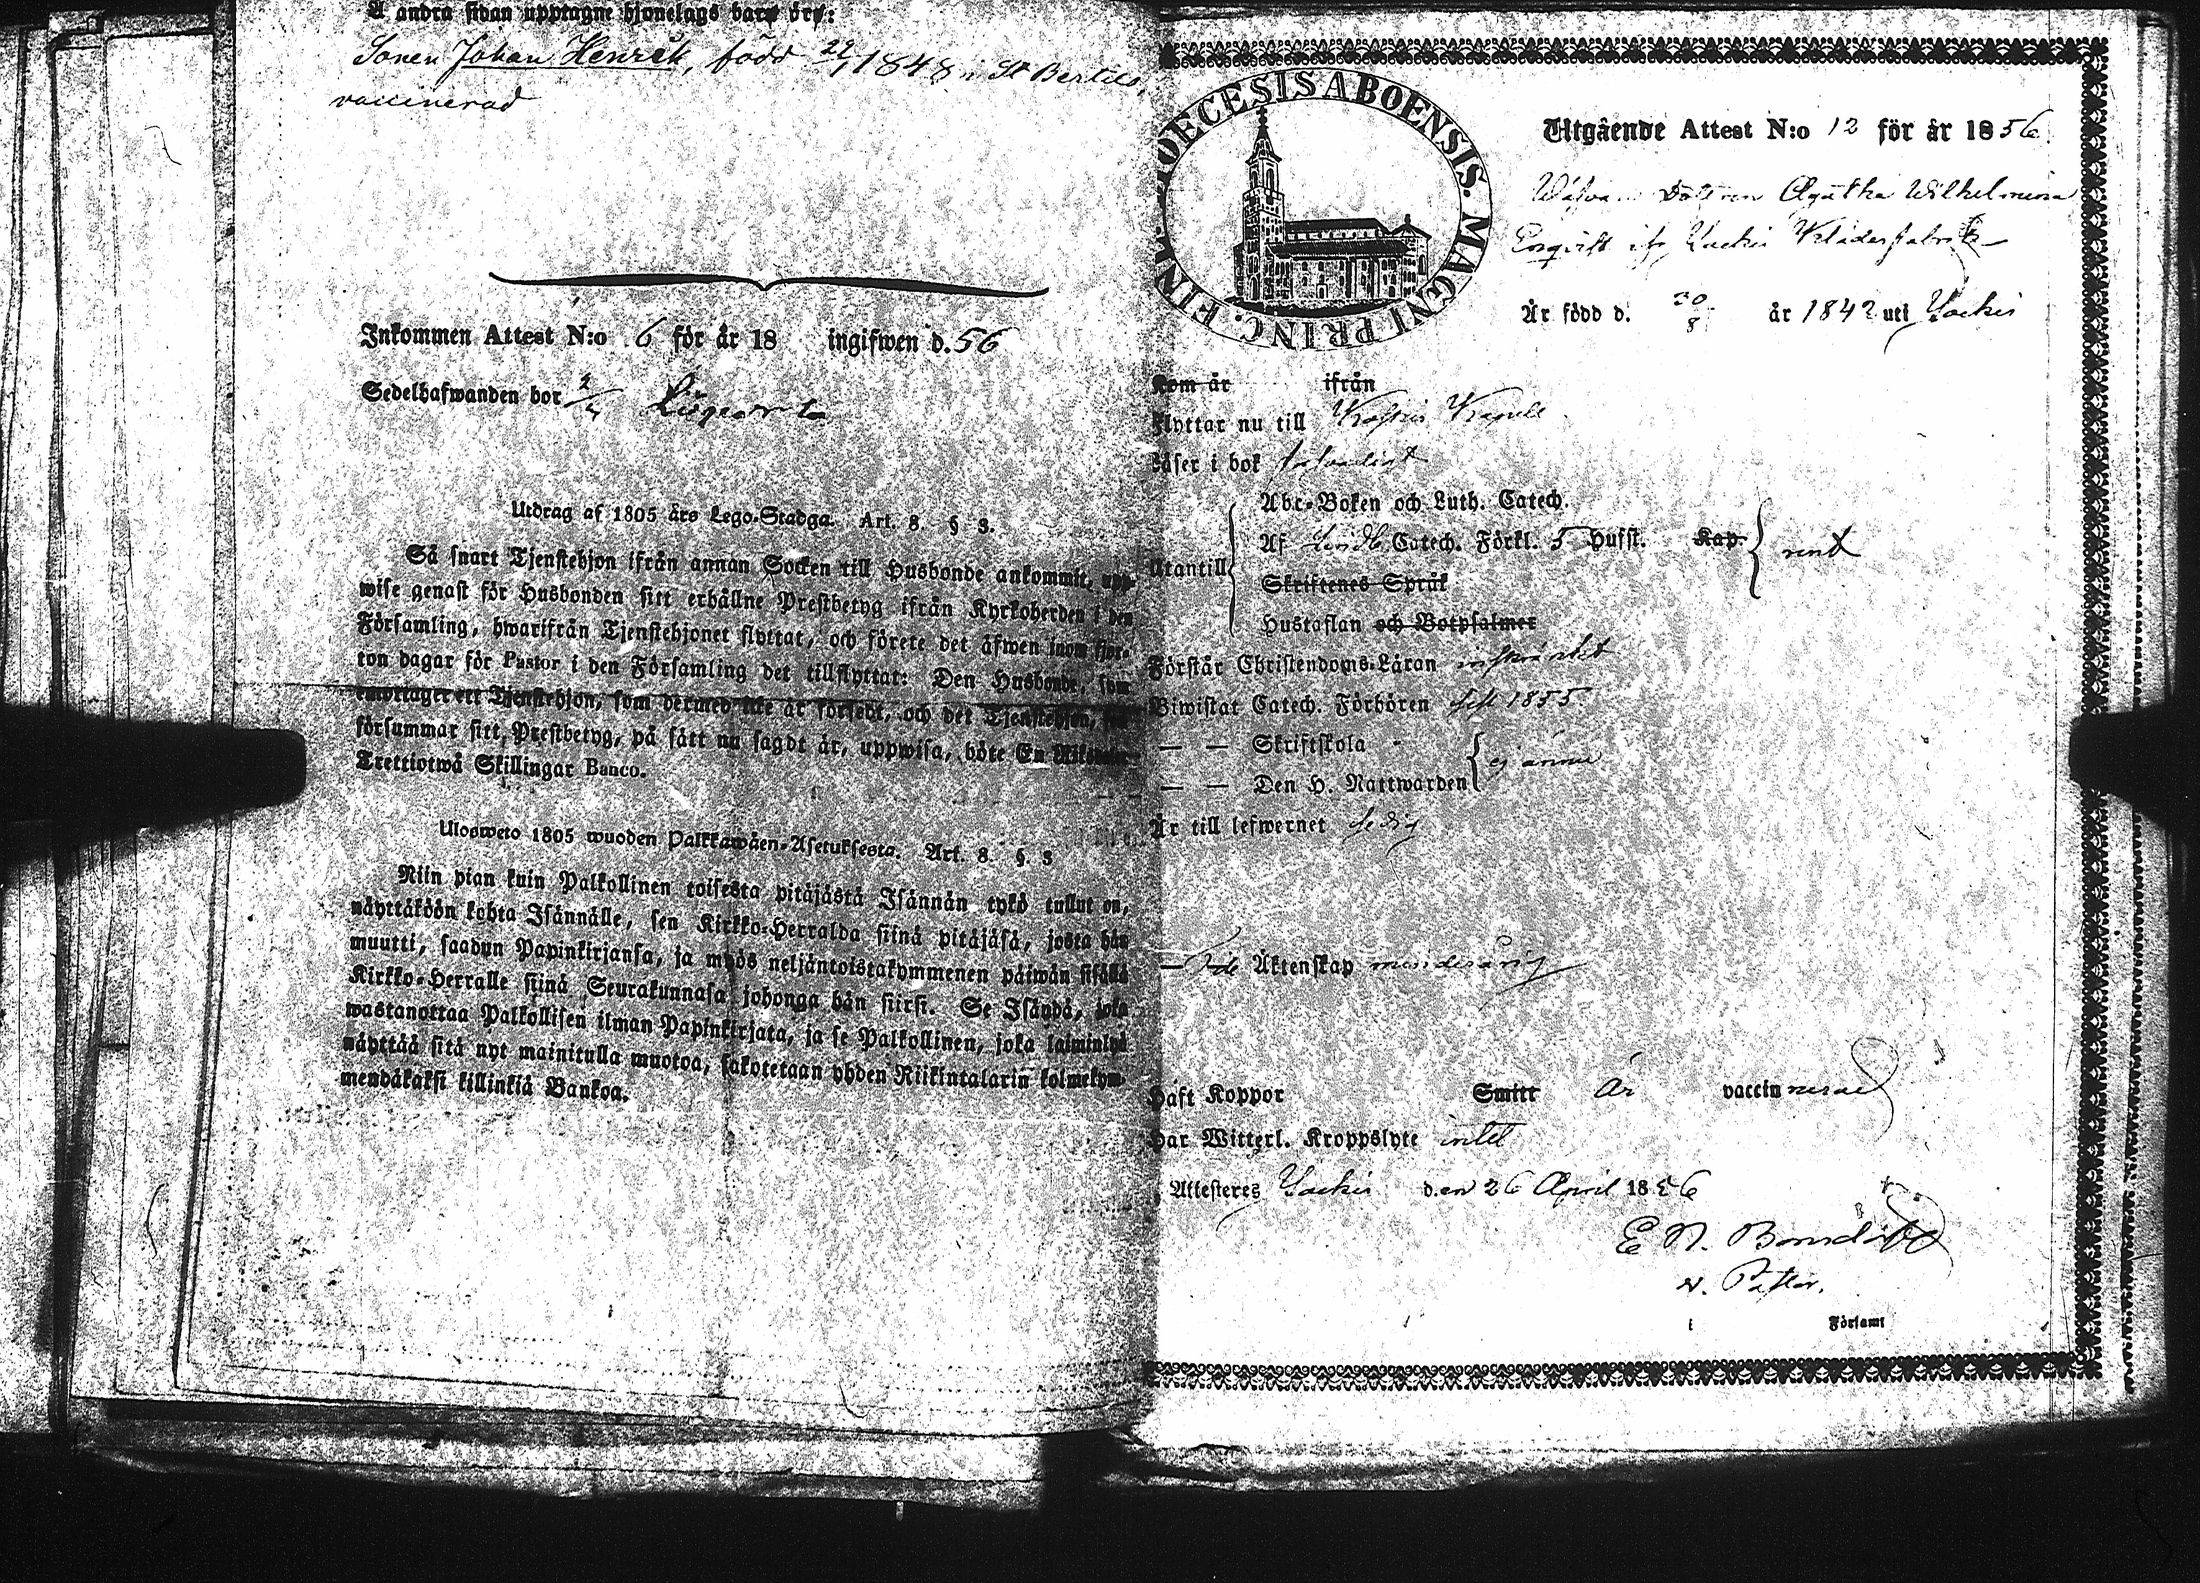 Å andra sidan upptagne hjonelags barn äro:
Sonen Johan Henrik, född 22/1 1848 i St Bertils,
vaccinerad
Inkommen Attest N:o 6 för år 18 ingifwen d. 56
Sedelhafwanden bor
Utdrag af 1805 års Lego-Stadga. Art. 8. § 3.
Så snart Tjenstehjon ifrån annan Socken till Husbonde ankommit, upp-
wise genast för Husbonden sitt erhållne Prestbetyg ifrån Kyrkoherden i den
Församling, hwarifrån Tjenstehjonet flyttat, och förete det äfwen inom fjor-
ton dagar för Pastor i den Församling det tillflyttat: Den Husbonde, som
emottager ett Tjenstehjon, som dermed icke är försedt, och det Tjenstehjon,
försummar sitt Prestbetyg, på sätt nu sagdt är, uppwisa, böte En Riksdaler
Trettiotwå Skillingar Banco.
Ulosweto 1805 wuoden Palkkawäen-Asetuksesta. Art. 8. §. 3
Niin pian kuin Palkollinen toisesta pitäjästä Isännän tykö tullut on,
näyttäköön kohta Isännälle, sen Kirkko-Herralda siinä pitäjäsä, josta hän
muutti, saadun Papinkirjansa, ja myös neljäntoistakymmenen päiwän sisällä
Kirkko-Herralle siinä Seurakunnasa johonga hän siirsi. Se Isändä, jota
wastanottaa Palkollisen ilman Papinkirjata, ja se Palkollinen, joka laiminlyö
näyttää sitä nyt mainitulla muotoa, sakotetaan yhden Riikintalarin kolmekym-
mendäkaksi killinkiä Bankoa.
DIOECESIS ABOENSIS. MAGNI PRINC. FINL.
Utgående Attest N:o 12 för år 1856.
Dottren Agatha Wilhelmina
Engqvist ifr. Klädesfabrik
Är född d. 30/8 år 1842 uti
Kom år ifrån
Flyttar nu till Kapell
Läser i bok
Abc-Boken och Luth. Catech.
Utantill Af Catech. Förkl. 5 Hufst. Kap. rent
Skriftenes Språk
Hustaflan och Botpsalmer
Förstår Christendoms-Läran
Biwistat Catech. Förhören sist 1855.
— — Skriftskola
— — Den H. Nattwarden ej ännu
Är till lefwernet sedig
— — Äktenskap minderårig
Haft Koppor Smitt Är vaccinnerad
Har Witterl. Kroppslyte intet
Attesteres den 26 April 1856
E N.
v. Pastor.
i Församl